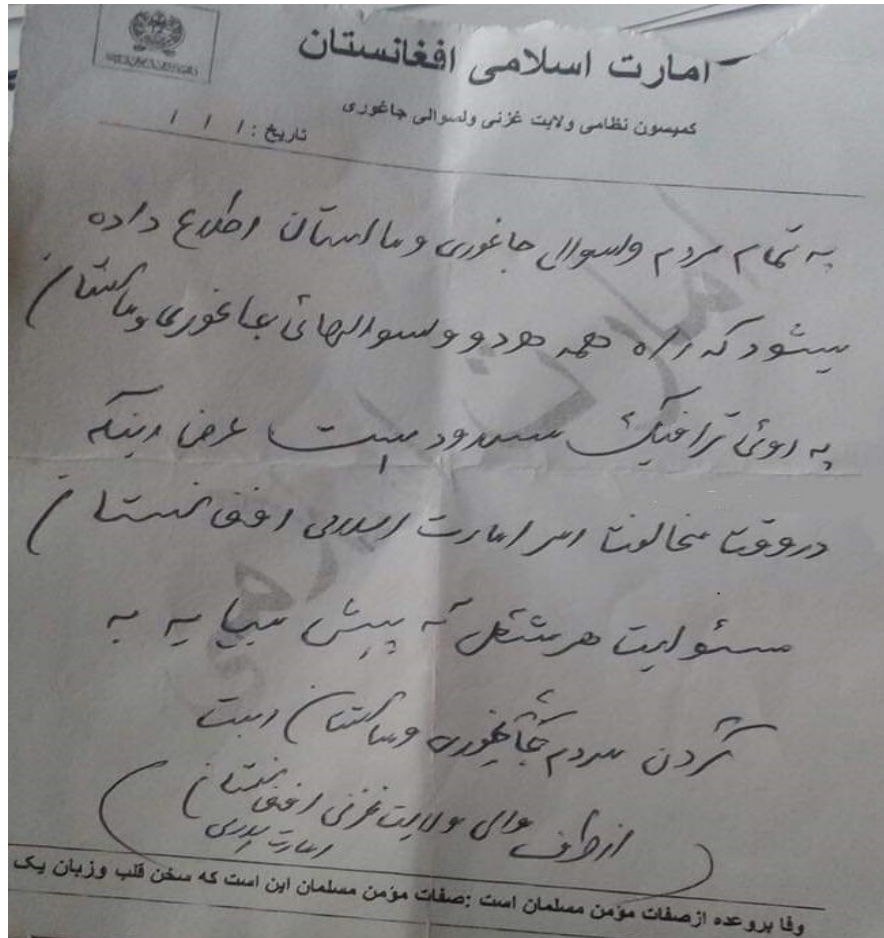 امارت اسلامی افغانستان
کمیسون نظامی ولایت غزنی ولسوالی جاغوری
تاریخ : / / /
په تمام مردم ولسوالی جاغوری و مالستان اطلاع داده
میشود که راه همه هردو ولسوالیهائ جاغوری و مالستان
په روئ ترافیک مسدود است غرض اینکه
در وقت مخالفت امر امارت اسلامی افغانستان
مسئولیت هر مشکل که پیش میآید به
گردن مردم جاغوری و مالستان است
از طرف والی ولایت غزنی افغانستان
امارت اسلامی
وفا بروعده ازصفات مؤمن مسلمان است :صفات مؤمن مسلمان این است که سخن قلب وزبان یک
امارت اسلامی